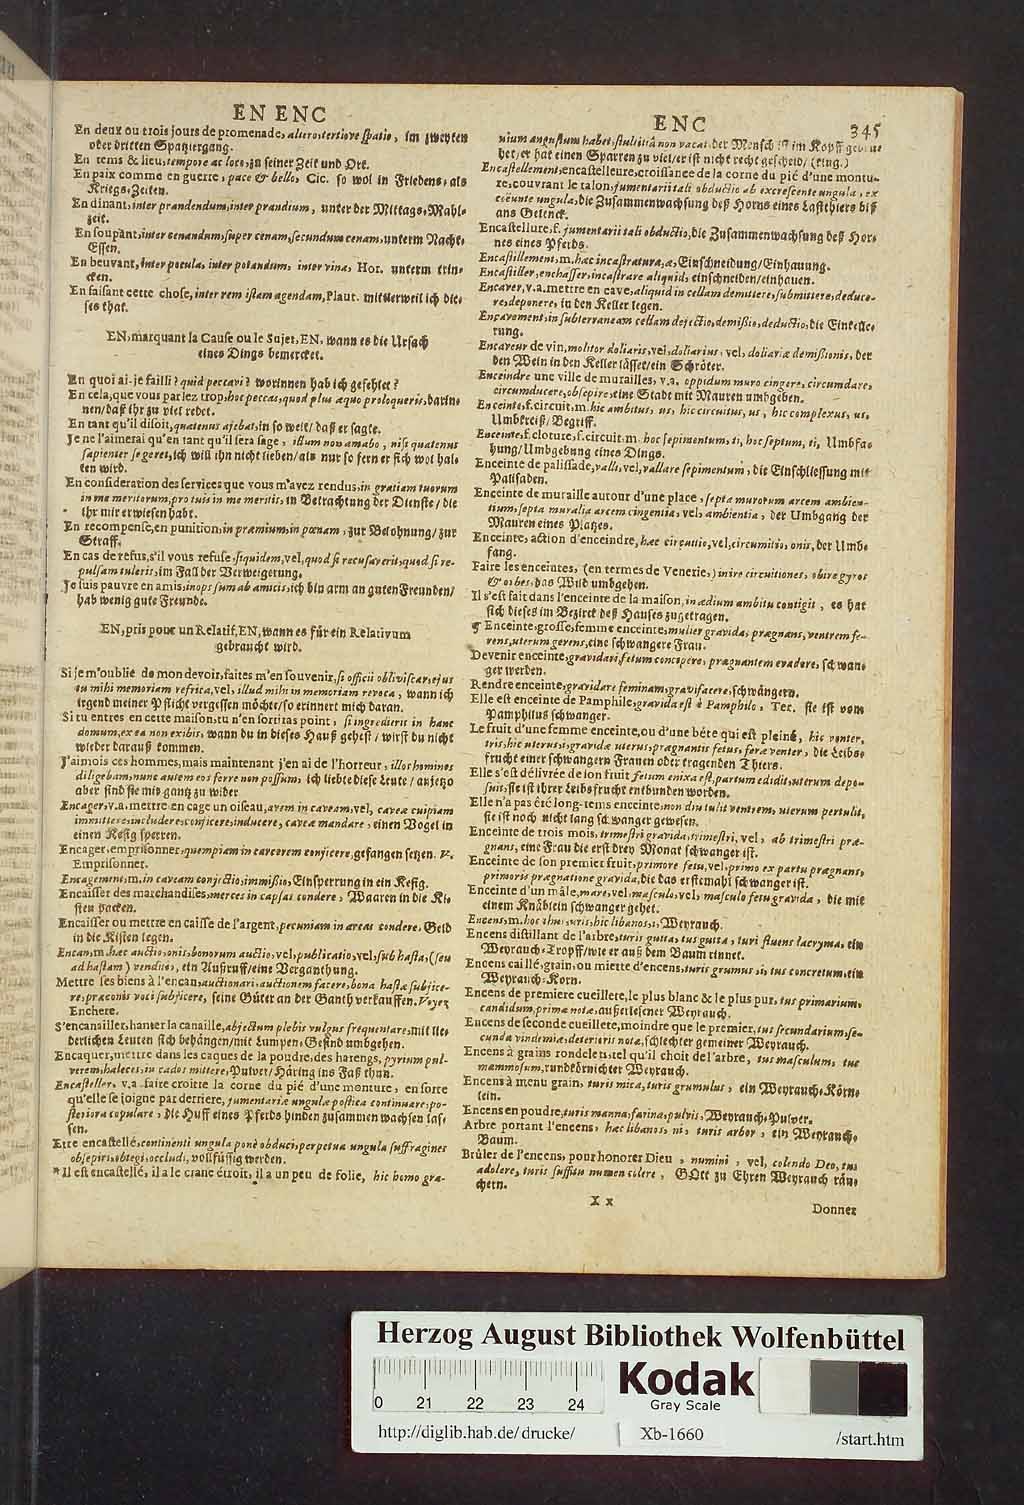 EN ENC
En deux ou trois jours de promenade, altero, tertiove spatio, im zweyten
oder dritten Spatziergang.
En tems & lieu, tempore ac loco, zu seiner Zeit und Ort.
En paix comme en guerre, pace & bello, Cic. so wol in Friedens, als
Kriegs-Zeiten.
En dinant, inter prandendum, inter prandium, unter der Mittags-Mahl-
zeit.
En soupant, inter cenandum, super cenam, secundum cenam, unterm Nacht-
Essen.
En beuvant, inter pocula, inter potandum, inter vina, Hor. unterm trin-
cken.
En faisant cette chose, inter rem istam agendam, Plaut. mitlerweil ich die-
ses that.
EN, marquant la Cause ou le Sujet, EN, wann es die Ursach
eines Dings bemercket.
En quoi ai-je failli? quid peccavi? worinnen hab ich gefehlet?
En cela, que vous parlez trop, hoc peccas, quod plus æquo proloqueris, darin-
nen/ daß ihr zu viel redet.
En tant qu'il disoit, quatenus ajebat, in so weit/ daß er sagte.
Je ne l'aimerai qu'en tant qu'il sera sage, illum non amabo, nisi quatenus
sapienter se geret, ich will ihn nicht lieben/ als nur so fern er sich wol hal-
ten wird.
En consideration des services que vous m'avez rendus, in gratiam tuorum
in me meritorum, pro tuis in me meritis, in Betrachtung der Dienste/ die
ihr mir erwiesen habt.
En recompense, en punition, in præmium, in pœnam, zur Belohnung/ zur
Straff.
En cas de refus, s'il vous refuse, siquidem, vel, quod si recusaverit, quod si re-
pulsam tuleris, im Fall der Verweigerung.
Je suis pauvre en amis, inops sum ab amicis, ich bin arm an guten Freunden/
hab wenig gute Freunde.
EN, pris pour un Relatif, EN, wann es für ein Relativum
gebraucht wird.
Si je m'oublie de mon devoir, faites m'en souvenir, si officii obliviscar, ejus
tu mihi memoriam refrica, vel, illud mihi in memoriam revoca, wann ich
irgend meiner Pflicht vergessen möchte/ so erinnert mich daran.
Si tu entres en cette maison, tu n'en sortiras point, si ingredieris in hanc
domum, ex ea non exibis, wann du in dieses Hauß gehest/ wirst du nicht
wieder darauß kommen.
J'aimois ces hommes, mais maintenant j'en ai de l'horreur, illos homines
diligebam, nunc autem eos ferre non possum, ich liebte diese Leute/ anjetzo
aber sind sie mir gantz zu wider
Encager, v.a. mettre en cage un oiseau, avem in caveam, vel, caveæ cuipiam
immittere, includere, conjicere, inducere, caveæ mandare, einen Vogel in
einen Kefig sperren.
Encager, emprisonner, quempiam in carcerem conjicere, gefangen setzen. V.
Emprisonner.
Encagement, m. in caveam conjectio, immissio, Einsperrung in ein Kefig.
Encaisser des marchandises, merces in capsas condere, Waaren in die Ki-
sten packen.
Encaisser ou mettre en caisse de l'argent, pecuniam in arcas condere, Geld
in die Kisten legen.
Encan, m. hæc auctio, onis, bonorum auctio, vel, publicatio, vel, sub hasta, (seu
ad hastam) venditio, ein Außruff/ eine Verganthung.
Mettre les biens à l'encan, auctionari, auctionem facere, bona hastæ subjice-
re, præconis voci subjicere, seine Güter an der Ganth verkauffen. Voyez
Enchere.
S'encanailler, hanter la canaille, abjectum plebis vulgus frequentare, mit lie-
derlichen Leuten sich behängen/ mit Lumpen-Gesind umbgehen.
Encaquer, mettre dans les caques de la poudre, des harengs, pyrium pul-
verem, haleces, in cados mittere, Pulver/ Häring ins Faß thun.
Encasteller, v.a. faire croitre la corne du pié d'une monture, en sorte
qu'elle se joigne par derriere, jumentariæ ungulæ postica continuare, po-
steriora copulare, die Huff eines Pferds hinden zusammen wachsen las-
sen.
Etre encastellé, continenti ungula ponè obduci, perpetua ungula suffragines
obsepiri, obtegi, occludi, vollfüssig werden.
* Il est encastellé, il a le crane étroit, il a un peu de folie, hic homo gra-
ENC 345
nium angustum habet, stultitiâ non vacat, der Mensch ist im Kopff
het/ er hat einen Sparren zu viel/ er ist nicht recht gescheid/ (klug.)
Encastellement, encastelleure, croissance de la corne du pié d'une montu-
re, couvrant le talon, jumentarii tali obductio ab excrescente ungula, ex
coëunte ungula, die Zusammenwachsung deß Horns eines Lastthiers biß
ans Gelenck.
Encastellure, f. jumentarii tali obductio, die Zusammenwachsung deß Hor-
nes eines Pferds.
Encastillement, m. hæc incastratura, æ, Einschneidung/ Einhauung.
Encastiller, enchasser, incastrare aliquid, einschneiden/ einhauen.
Encaver, v.a. mettre en cave, aliquid in cellam demittere, submittere, deduce-
re, deponere, in den Keller legen.
Encavement, in subterraneam cellam dejectio, demissio, deductio, die Einkelle-
rung.
Encaveur de vin, molitor doliaris, vel, doliarius, vel, doliariæ demissionis, der
den Wein in den Keller lässet/ ein Schröter.
Enceindre une ville de murailles, v.a. oppidum muro cingere, circumdare,
circumducere, obsepire, eine Stadt mit Mauren umbgeben.
Enceinte, f. circuit, m. hic ambitus, us, hic circuitus, us, hic complexus, us,
Umbkreiß/ Begriff.
Enceinte, f. cloture, f. circuit. m. hoc sepimentum, ti, hoc septum, ti, Umbfa-
hung/ Umbgebung eines Dings.
Enceinte de palissade, valli, vel, vallare sepimentum, die Einschliessung mit
Palisaden.
Enceinte de muraille autour d'une place, septa murorum arcem ambien-
tium, septa muralia arcem cingentia, vel, ambientia, der Umbgang der
Mauren eines Platzes.
Enceinte, action d'enceindre, hæc circuitio, vel, circumitio, onis, der Umb-
fang.
Faire les enceintes, (en termes de Venerie,) inire circuitiones, obire gyros
& orbes, das Wild umbgehen.
Il s'est fait dans l'enceinte de la maison, in ædium ambitu contigit, es hat
sich dieses im Bezirck deß Hauses zugetragen.
¶ Enceinte, grosse, femme enceinte, mulier gravida, prægnans, ventrem fe-
rens, uterum gerens, eine schwangere Frau.
Devenir enceinte, gravidari, fetum concipere, prægnantem evadere, schwan-
ger werden.
Rendre enceinte, gravidare feminam, gravifacere, schwängern.
Elle est enceinte de Pamphile, gravida est è Pamphilo, Ter. sie ist vom
Pamphilus schwanger.
Le fruit d'une femme enceinte, ou d'une bête qui est pleine, hic venter,
tris, hic uterus, i, gravidæ uterus, prægnantis fetus, feræ venter, die Leibs-
frucht einer schwangern Frauen oder tragenden Thiers.
Elle s'est délivrée de son fruit, fetum enixa est, partum edidit, uterum depo-
suit, sie ist ihrer Leibsfrucht entbunden worden.
Elle n'a pas été long-tems enceinte, non diu tulit ventrem, uterum pertulit,
sie ist noch nicht lang schwanger gewesen.
Enceinte de trois mois, trimestri gravida, trimestri, vel, ab trimestri præ-
gnans, eine Frau die erst drey Monat schwanger ist.
Enceinte de son premier fruit, primore fetu, vel, primo ex partu prægnans,
primoris prægnatione gravida, die das erstemahl schwanger ist.
Enceinte d'un mâle, mare, vel, masculo, vel, masculo fetu gravida, die mit
einem Knäblein schwanger gehet.
Encens, m. hoc thus, uris, hic libanos, i, Weyrauch.
Encens distillant de l'arbre, turis gutta, tus gutta, turi fluens lacryma, ein
Weyrauch-Tropff/ wie er auß dem Baum rinnet.
Encens caillé, grain, ou miette d'encens, turis grumus, i, tus concretum, ein
Weyrauch-Korn.
Encens de premiere cueillete, le plus blanc & le plus pur, tus primarium,
candidum, primæ notæ, außerlesener Weyrauch.
Encens de seconde cueillete, moindre que le premier, tus secundarium, se-
cundæ vindemiæ, deterioris notæ, schlechter gemeiner Weyrauch.
Encens à grains rondelets, tel qu'il choit de l'arbre, tus masculum, tus
mammosum, rundkörnichter Weyrauch.
Encens à menu grain, turis mica, turis grumulus, ein Weyrauch-Körn-
lein.
Encens en poudre, turis manna, farina, pulvis, Weyrauch-Pulver.
Arbre portant l'encens, hæc libanos, ni, turis arbor, ein Weyrauch-
Baum.
Brûler de l'encens, pour honorer Dieu, numini, vel, colendo Deo, tus
adolere, turis suffitu numen colere, GOtt zu Ehren Weyrauch räu-
chern.
X x
Donner
Herzog August Bibliothek Wolfenbüttel
0 21 22 23 24
Kodak
Gray Scale
http://diglib.hab.de/drucke/
Xb-1660
/start.htm